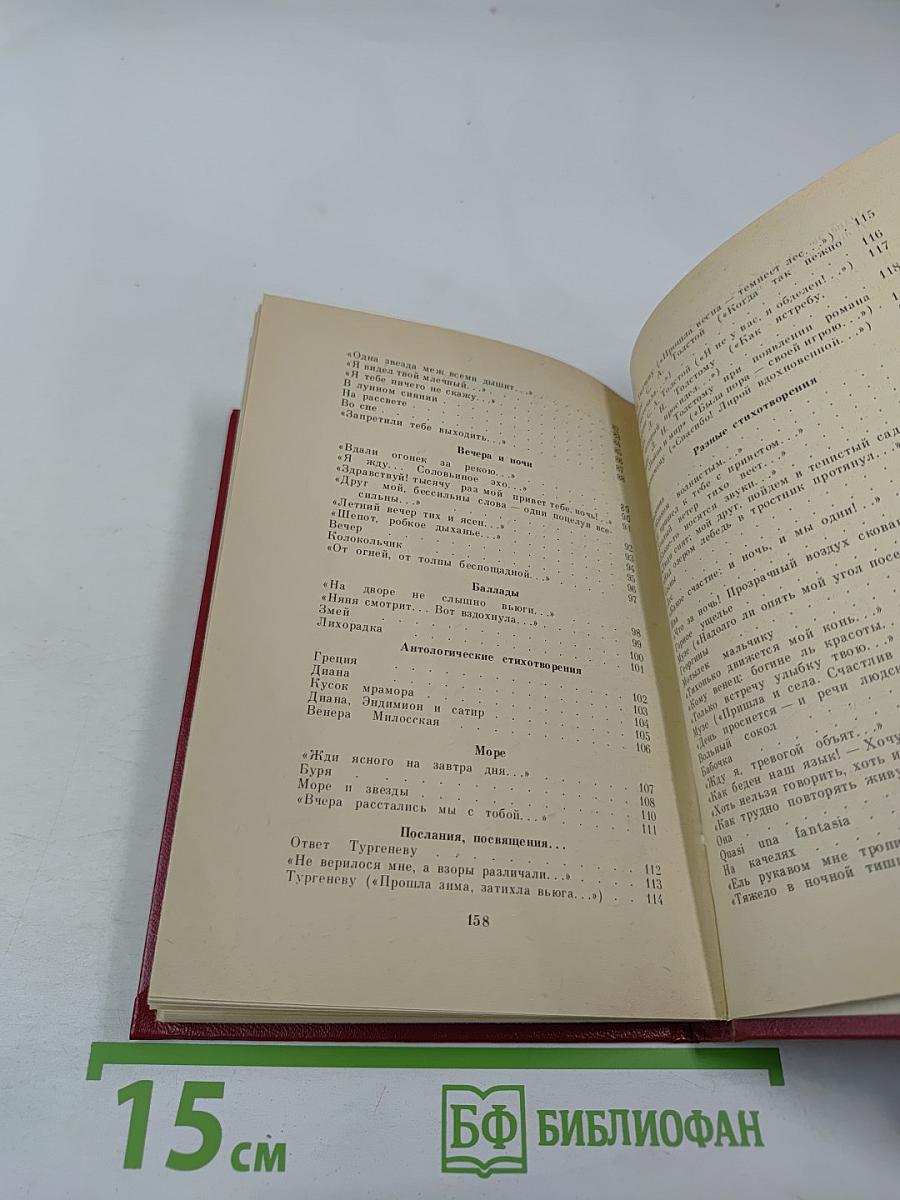 «Одна звезда меж всеми дышит...»
«Я видел твой млечный...»
«Я тебе ничего не скажу...»
В лунном сиянии
На рассвете
Во сне
«Запретили тебе выходить...»
Вечера и ночи
«Вдали огонек за рекою...» 89
«Я жду... Соловьиное эхо...» 90
«Здравствуй! тысячу раз мой привет тебе, ночь!..» 91
«Друг мой, бессильны слова — одни поцелуи все-
сильны...» 92
«Летний вечер тих и ясен...» 93
«Шепот, робкое дыханье...» 94
Вечер 95
Колокольчик 96
«От огней, от толпы беспощадной...» 97
Баллады
«На дворе не слышно вьюги...» 98
«Няня смотрит... Вот вздохнула...» 99
Змей 100
Лихорадка 101
Антологические стихотворения
Греция 102
Диана 103
Кусок мрамора 104
Диана, Эндимион и сатир 105
Венера Милосская 106
Море
«Жди ясного на завтра дня...» 107
Буря 108
Море и звезды 110
«Вчера расстались мы с тобой...» 111
Послания, посвящения...
Ответ Тургеневу 112
«Не верилося мне, а взоры различали...» 113
Тургеневу («Прошла зима, затихла вьюга...») 114
158
(«Прошла весна — темнеет лес...») 115
Толстой («Когда так нежно 116
А. Толстой («Я не у вас, я обделен!..») 117
Толстому («Как ястребу, 118
Толстому при появлении романа
и мир» («Была пора — своей игрою...»)
(«Спасибо! Лирой вдохновенной...»)
Разные стихотворения
волнистым...»
к тебе с приветом...»
ветер тихо веет...»
носятся звуки...»
спят; мой друг, пойдем в тенистый сад
озером лебедь в тростник протянул...»
счастье: и ночь, и мы одни!..»
«Что за ночь! Прозрачный воздух скован
Горное ущелье
Музе («Надолго ли опять мой угол посе
Георгины
Мотылек мальчику
«Тихонько движется мой конь...»
«Кому венец: богине ль красоты...
«Только встречу улыбку твою...»
Музе («Пришла и села. Счастлив
«День проснется — и речи людск
Вольный сокол
Бабочка
«Жду я, тревогой объят...»
«Как беден наш язык! — Хочу
«Хоть нельзя говорить, хоть и
«Как трудно повторять живу
Она
Quasi una fantasia
На качелях
«Ель рукавом мне тропи
«Тяжело в ночной тиши
15 см
БФ БИБЛИОФАН